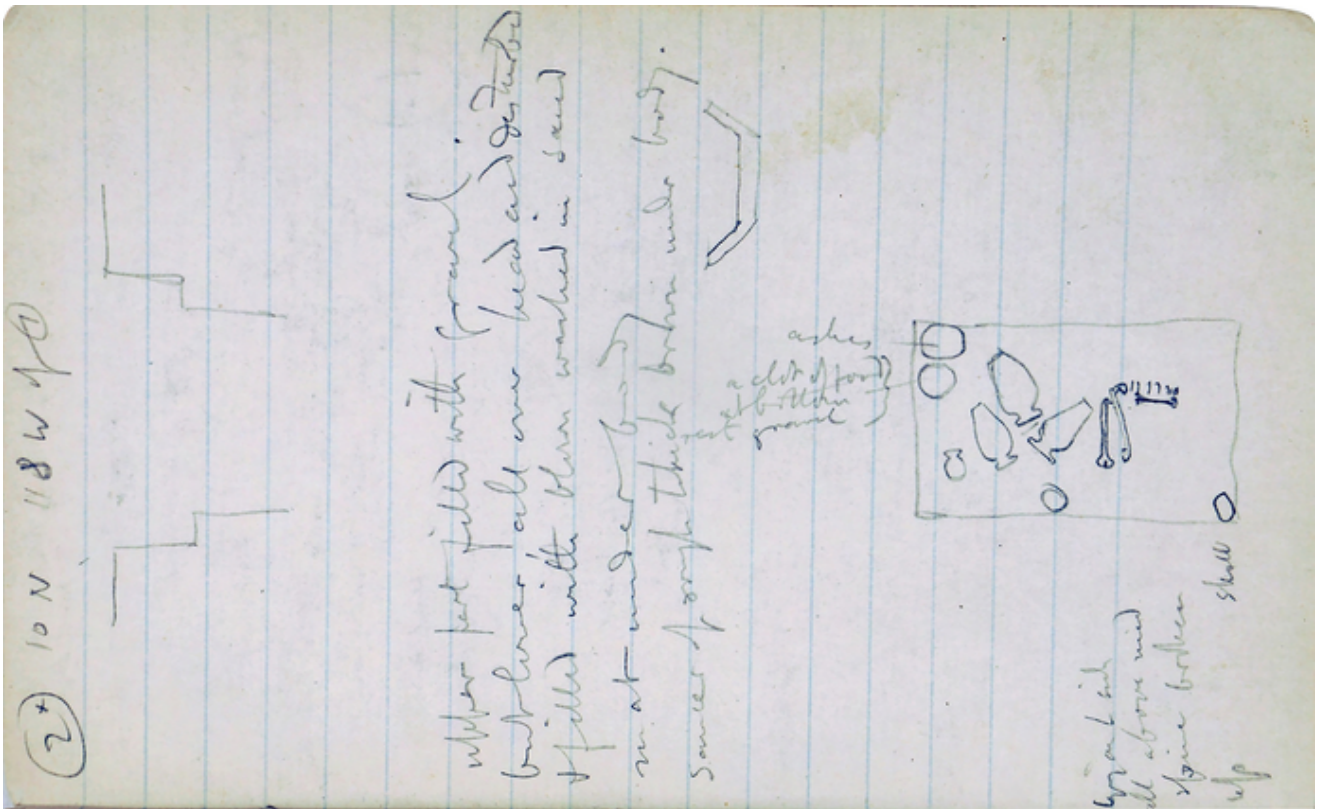 2* 10 N 118 W of 1
upper part filled with gravel.
but lower all over head and disturbed
& filled with blown washed in sand
mat under body
Saucer of rough thick brown under body.
ashes
a clot of food
at bottom
rest gravel
on left side
all above mid
spine broken
up
skull